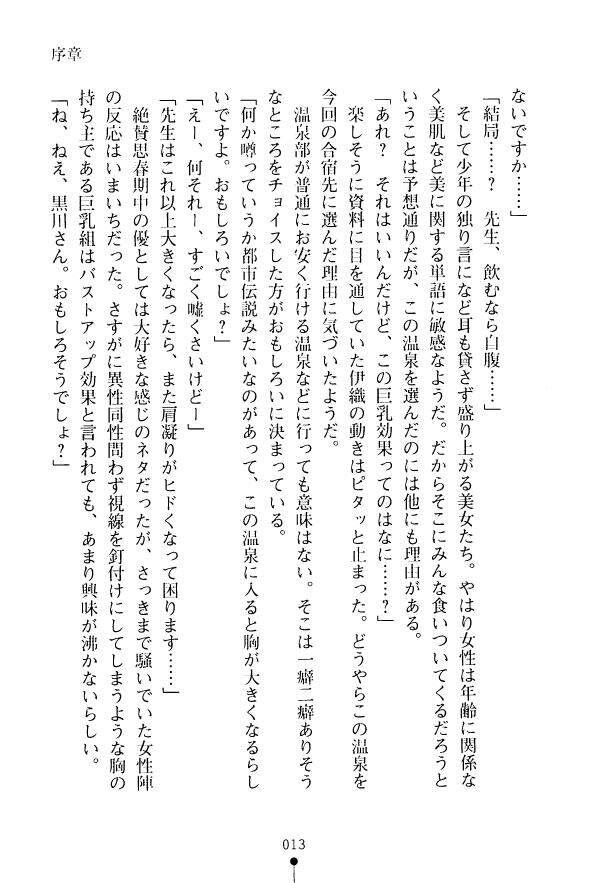 序章
ないですか……」
「結局……？　先生、飲むなら自腹……」
そして少年の独り言になど耳も貸さず盛り上がる美女たち。やはり女性は年齢に関係な
く美肌など美に関する単語に敏感なようだ。だからそこにみんな食いついてくるだろうと
いうことは予想通りだが、この温泉を選んだのには他にも理由がある。
「あれ？　それはいいんだけど、この巨乳効果ってのはなに……？」
楽しそうに資料に目を通していた伊織の動きはピタッと止まった。どうやらこの温泉を
今回の合宿先に選んだ理由に気づいたようだ。
温泉部が普通にお安く行ける温泉などに行っても意味はない。そこは一癖二癖ありそう
なところをチョイスした方がおもしろいに決まっている。
「何か噂っていうか都市伝説みたいなのがあって、この温泉に入ると胸が大きくなるらし
いですよ。おもしろいでしょ？」
「えー、何それー、すごく嘘くさいけどー」
「先生はこれ以上大きくなったら、また肩凝りがヒドくなって困ります……」
絶賛思春期中の優としては大好きな感じのネタだったが、さっきまで騒いでいた女性陣
の反応はいまいちだった。さすがに異性同性問わず視線を釘付けにしてしまうような胸の
持ち主である巨乳組はバストアップ効果と言われても、あまり興味が沸かないらしい。
「ね、ねえ、黒川さん。おもしろそうでしょ？」
013